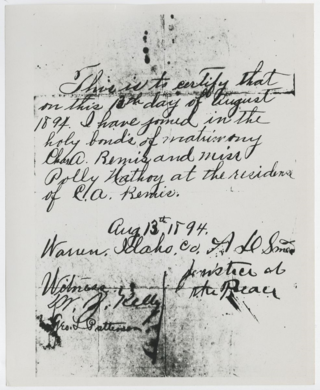 This is to certify that
on this 13th day of August
1894. I have joined in the
holy bonds of matrimony
Chas A. Bemis and miss
Polly Hathoy at the residence
of C. A. Bemis.
Aug 13th 1894.
Warren, Idaho, Co, A D Smead
Justice of
the Peace
Witness
W. J. Kelly
Geo. L Patterson